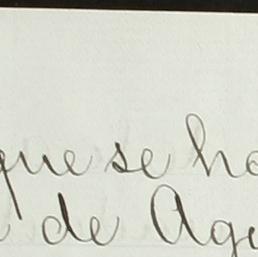 que se ha
de Ago